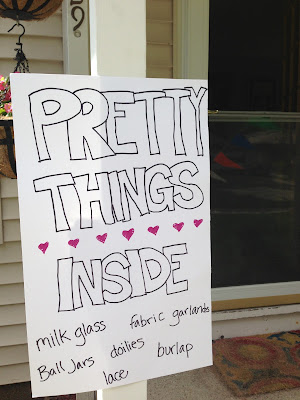 9
PRETTY
THINGS
INSIDE
milk glass fabric garlands
Ball Jars doilies burlap
lace